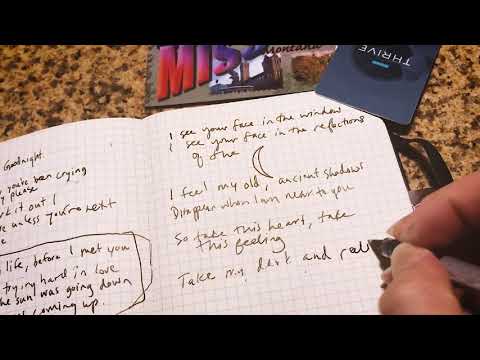 MIS
Montana
THRIVE
Goodnight.
you've been crying
please
it out I
unless you're next
life, before I met you
trying hard in love
he sun was going down
coming up.
I see your face in the window
I see your face in the reflections
of the
I feel my old, ancient shadows
Disappear when I am near to you
So take this heart, take
this feeling
Take my dark and